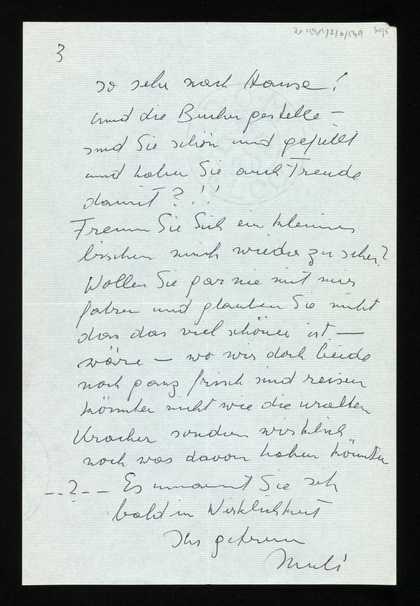 3
so sehr nach Hause!
und die Büchergestelle –
sind Sie schön und gefüllt
und haben Sie auch Freude
damit?!!
Freuen Sie Sich ein kleines
bisschen mich wieder zu sehen?
Wollen Sie gar nie mit mir
fahren und glauben Sie nicht
dass das viel schöner ist –
wäre – wo wir doch beide
noch ganz frisch sind reisen
könnten nicht wie die uralten
Kracher sondern wirklich
noch was davon haben könnten
--?-- Es umarmt Sie sehr
bald in Wirklichkeit
Ihr getreuer